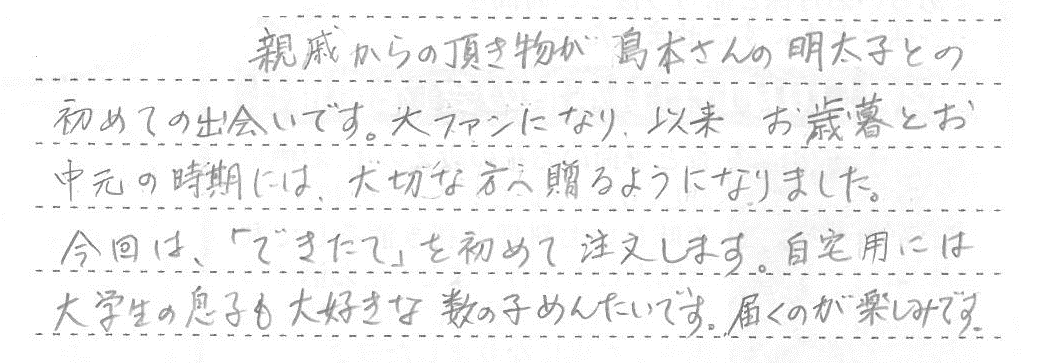 親戚からの頂き物が島本さんの明太子との
初めての出会いです。大ファンになり、以来 お歳暮とお
中元の時期には、大切な方へ贈るようになりました。
今回は、「できたて」を初めて注文します。自宅用には
大学生の息子も大好きな数の子めんたいです。届くのが楽しみです。